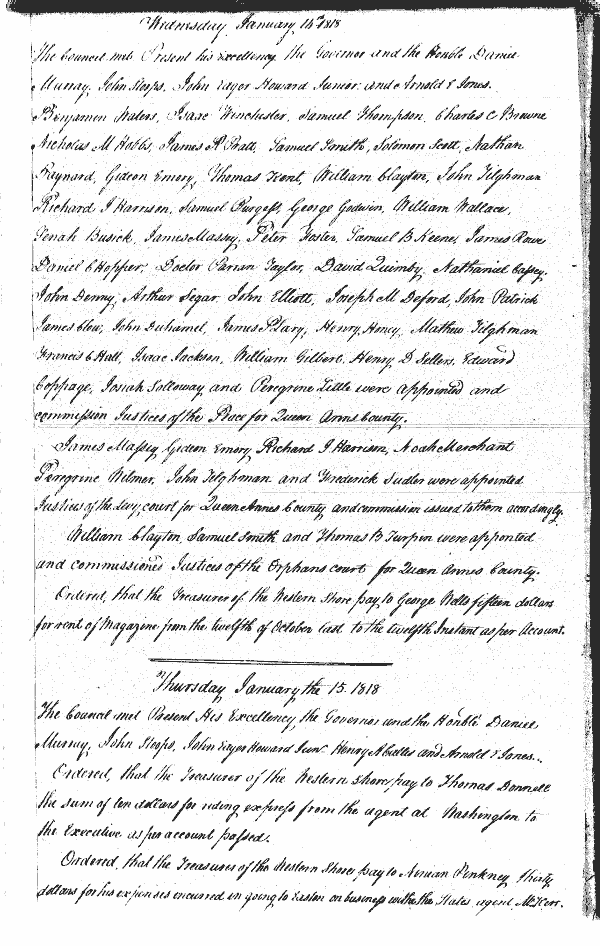 Wednesday January 14th 1818
The Council met Present his Excellency the Governor and the Honble Daniel
Murray, John Stoops, John Eager Howard Junior and Arnold E Jones.
Benjamin Waters, Isaac Winchester, Samuel Thompson, Charles C Browne
Nicholas M Hobbs, James R Pratt, Samuel Smith, Solomon Scott, Nathan
Raynard, Gideon Emory, Thomas Kent, William Clayton, John Tilghman
Richard J Harrison, Samuel Burgess, George Godwin, William Wallace,
Tenah Busick, James Massey, Peter Foster, Samuel B Keene, James Rowe
Daniel C Hopper, Doctor Parran Taylor, David Quimby, Nathaniel Cassey.
John Denny, Arthur Segar, John Elliott, Joseph M Deford, John Patrick
James Clow, John Duhamel, James P Clary, Henry Honey, Mathew Tilghman
Francis C Hall, Isaac Jackson, William Gilbert, Henry D Sellers, Edward
Coppage, Josiah Holloway and Peregrine Tittle were appointed and
commission Justices of the Peace for Queen Anns County.
James Massey, Gideon Emory, Richard J Harrison, Noah Merchant
Peregrine Wilmer, John Tilghman and Frederick Sudler were appointed
Justices of the Levy court for Queen Annes County and commission issued to them accordingly.
William Clayton, Samuel Smith and Thomas B Turpin were appointed
and commissioned Justices of the Orphans court for Queen Annes County.
Ordered, that the Treasurer of the Western Shore pay to George Wells fifteen dollars
for rent of Magazine from the twelfth of October last to the twelfth Instant as per Account.
Thursday January the 15. 1818
The Council met Present His Excellency, the Governor and the Honble Daniel
Murray, John Stoops, John Eager Howard Junr. Henry H and Arnold E Jones.
Ordered, that the Treasurer of the Western shore pay to Thomas Donnell
the sum of ten dollars for riding express from the agent at Washington to
the Executive as per account passed.
Ordered, that the Treasurer of the Western Shore pay to Ninian Pinkney thirty
dollars for his expenses incurred in going to Easton on business with the States agent